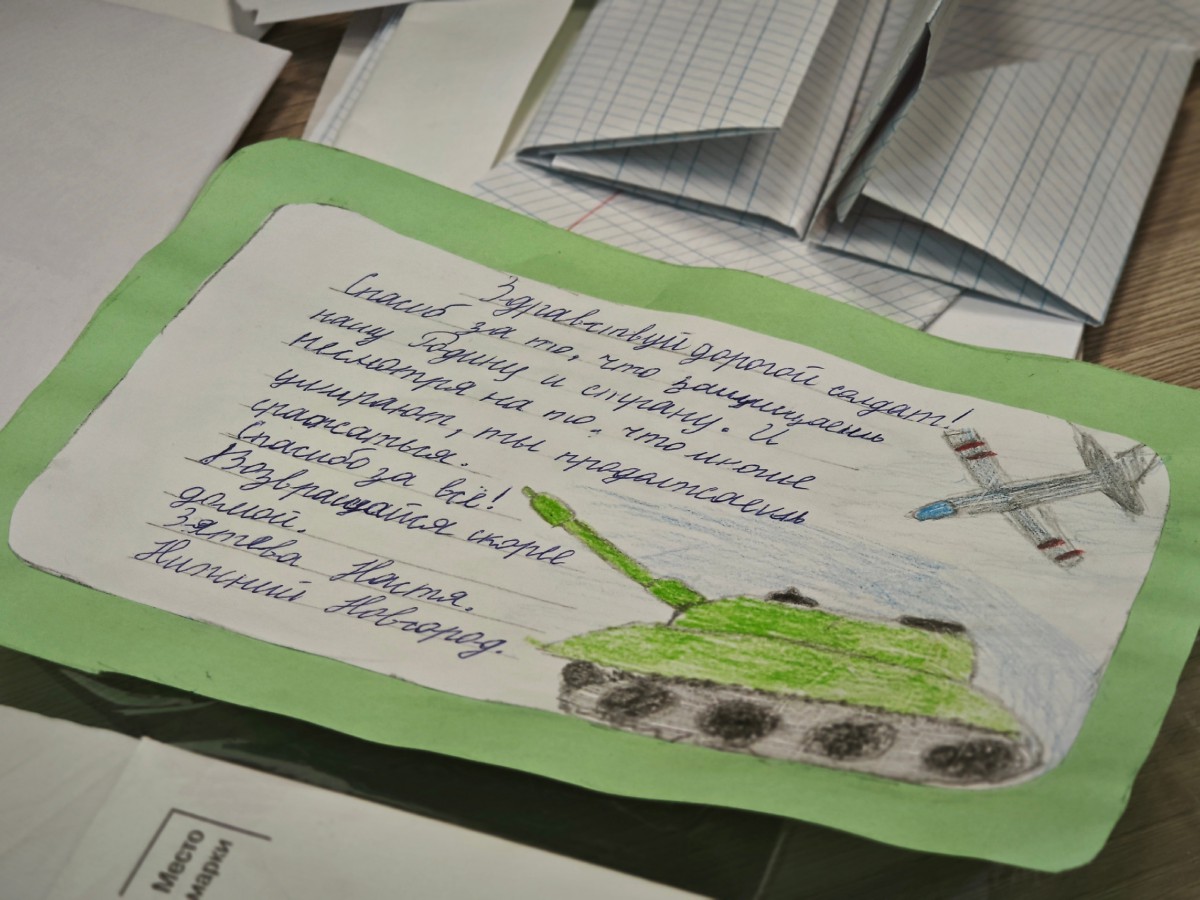 Здравствуй дорогой солдат!
Спасиб за то, что защищаешь
нашу Родину и страну. И
несмотря на то, что многие
умирают, ты продолжаешь
сражаться.
Спасибо за всё!
Возвращайся скорее
домой.
Зятева Настя.
Нижний Новгород.
Место
марки